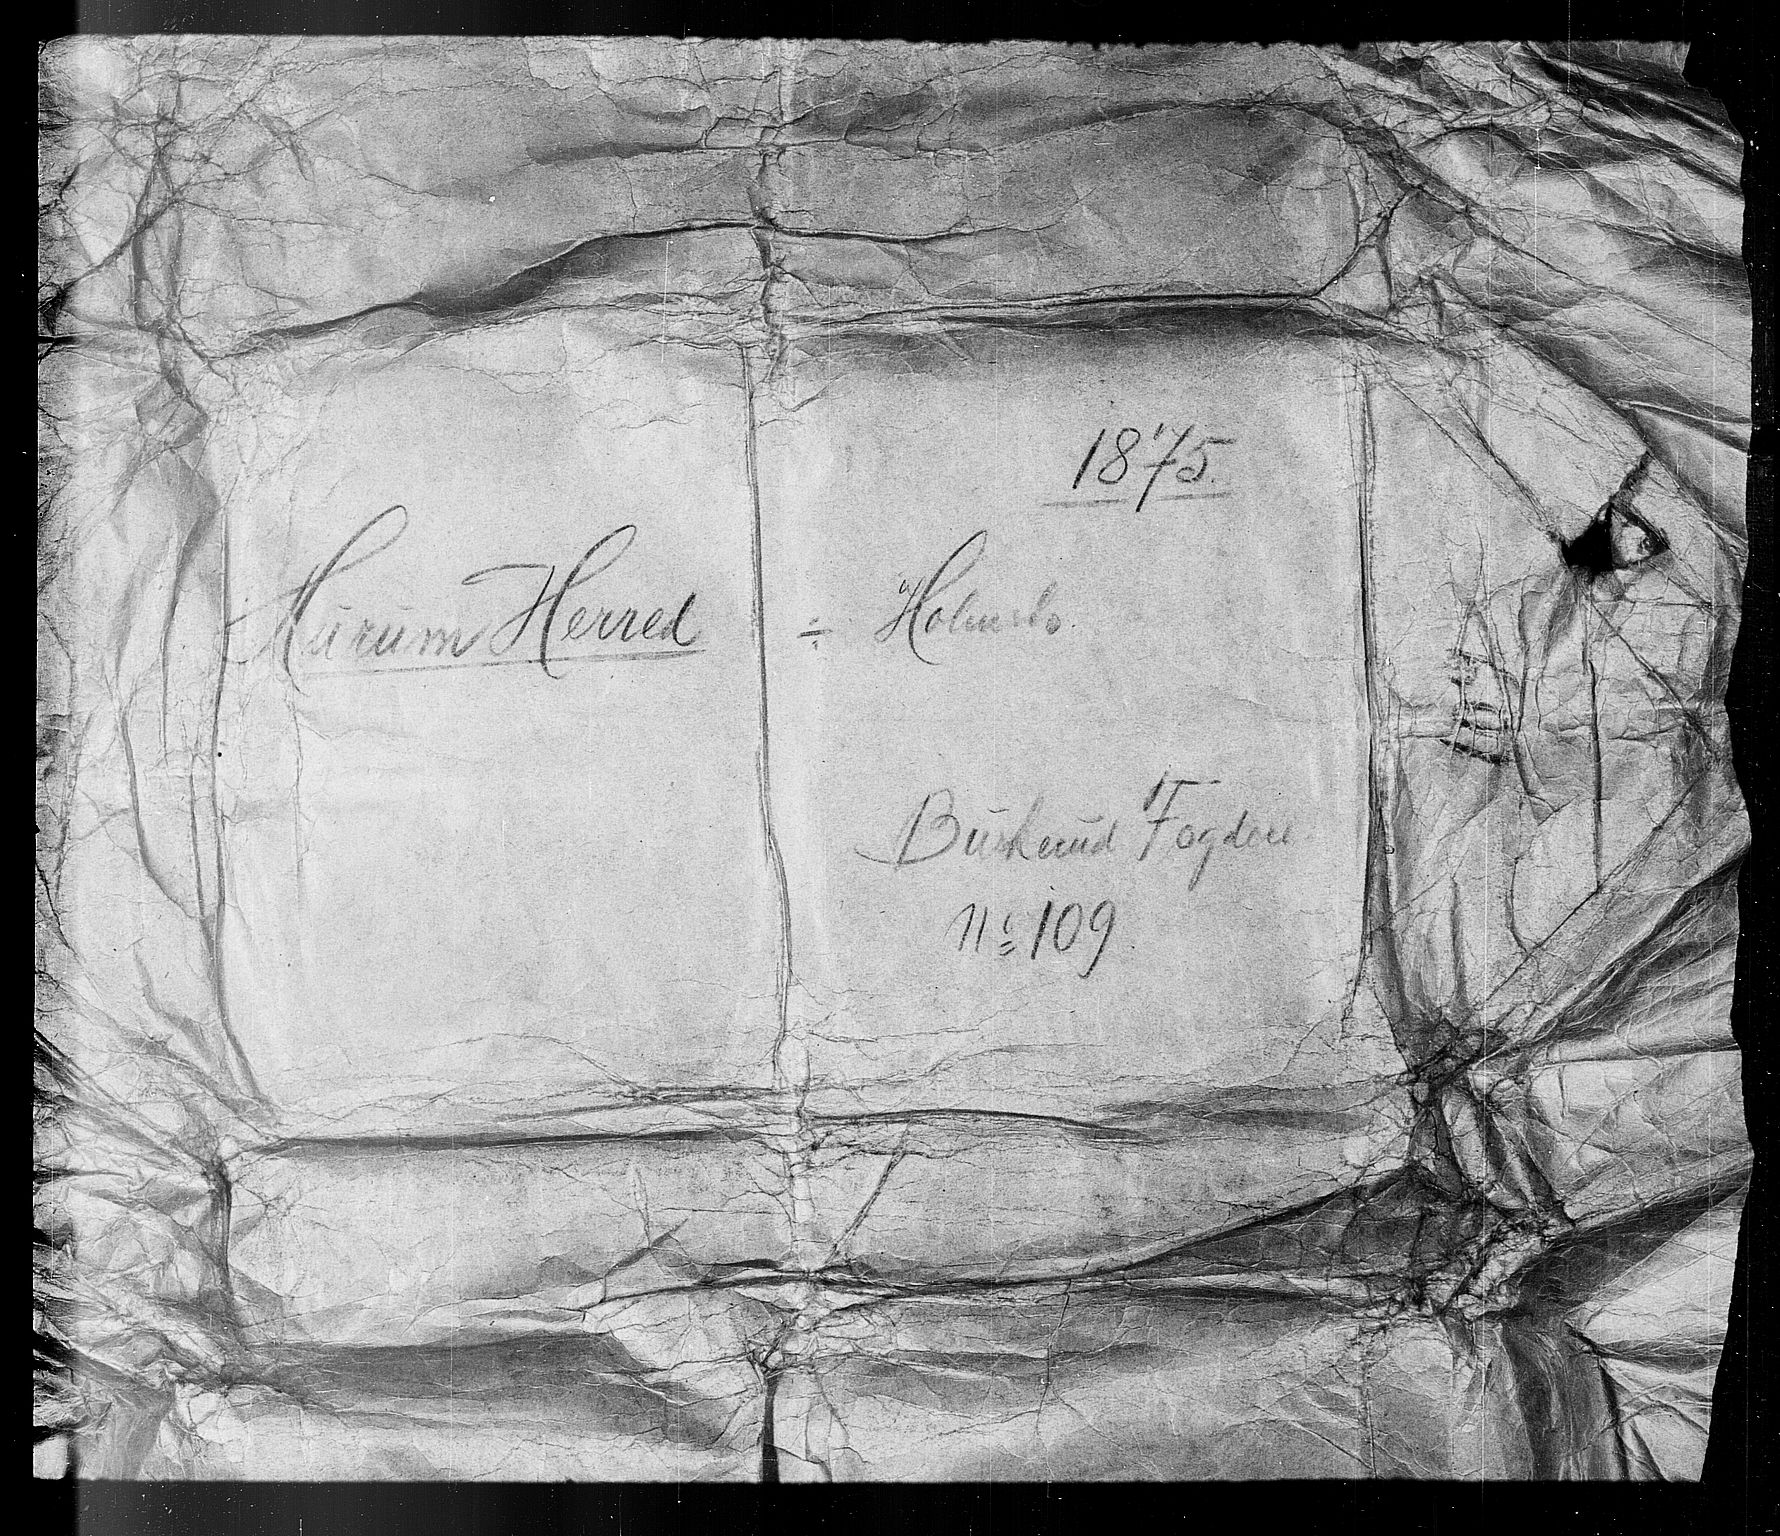 1875.
Hurum Herred ÷ Holmsbo.
Buskerud Fogderi
No 109